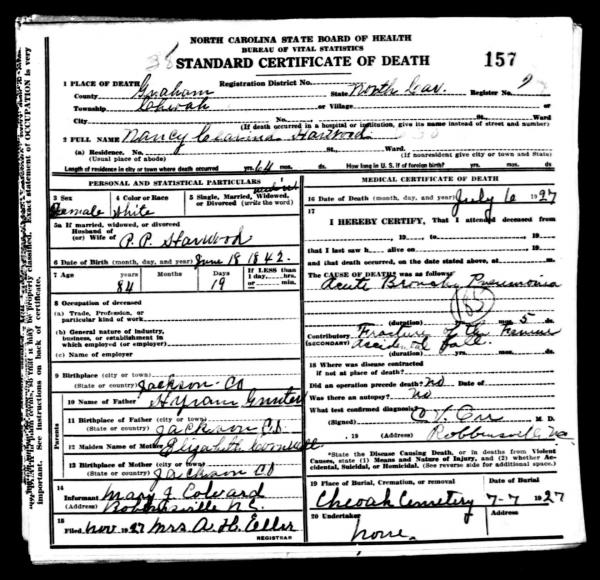 NORTH CAROLINA STATE BOARD OF HEALTH
BUREAU OF VITAL STATISTICS
STANDARD CERTIFICATE OF DEATH 157
1 PLACE OF DEATH Registration District No.
County Graham State North Car. Register No. 9
Township Cheoah or Village
City No. St. Ward
(If death occurred in a hospital or institution, give its name instead of street and number)
2 FULL NAME Nancy Harwood
(a) Residence. No. St. Ward.
(Usual place of abode) (If nonresident give city or town and State)
Length of residence in city or town where death occurred yrs. 64 mos. ds. How long in U. S. if of foreign birth? yrs. mos. ds.
PERSONAL AND STATISTICAL PARTICULARS
3 Sex 4 Color or Race 5 Single, Married, Widowed, or Divorced (write the word)
Female White
5a If married, widowed, or divorced
Husband of
(or) Wife of P. P. Harwood
6 Date of Birth (month, day, and year) June 18 1842.
7 Age years Months Days If LESS than 1 day, hrs. or min.
84 19
8 Occupation of deceased
(a) Trade, Profession, or particular kind of work
(b) General nature of industry, business, or establishment in which employed (or employer)
(c) Name of employer
9 Birthplace (city or town)
(State or country) Jackson Co
Parents
10 Name of Father Hyram
11 Birthplace of Father (city or town)
(State or country) Jackson Co.
12 Maiden Name of Mother Elizabeth
13 Birthplace of Mother (city or town)
(State or country) Jackson Co
14 Informant Mary J. Colvard
(Address) Robbinsville N.C.
15 Filed Nov. 1927 Mrs. A. H.
MEDICAL CERTIFICATE OF DEATH
16 Date of Death (month, day, and year) July 6 1927
17
I HEREBY CERTIFY, That I attended deceased from
, 19 , to , 19
that I last saw h alive on , 19
and that death occurred, on the date stated above, at m.
The CAUSE OF DEATH was as follows:
Acute Broncho Pneumonia
185
(duration) yrs. mos. 5 ds.
Contributory Fracture of the Femur
(SECONDARY) Accidental fall
(duration) yrs. mos. ds.
18 Where was disease contracted
if not at place of death?
Did an operation precede death? No Date of
Was there an autopsy? No
What test confirmed diagnosis?
(Signed) O. V. Orr M. D.
, 19 (Address) Robbinsville, N.C.
*State the Disease Causing Death, or in deaths from Violent Causes, state (1) Means and Nature of Injury, and (2) whether Accidental, Suicidal, or Homicidal. (See reverse side for additional space.)
19 Place of Burial, Cremation, or removal Date of Burial
Cheoah Cemetery 7-7 1927
20 Undertaker
none.